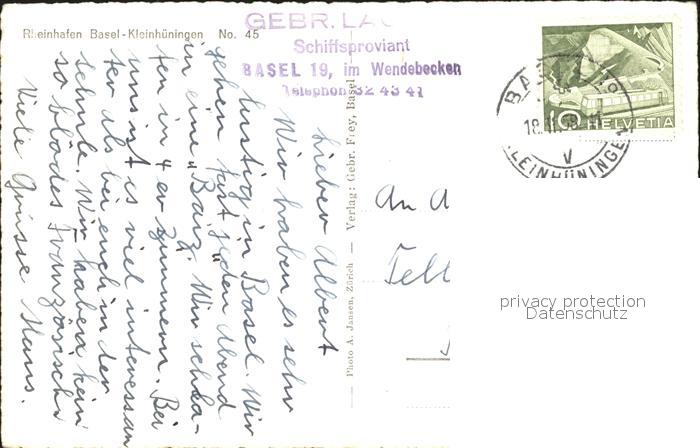 Rheinhafen Basel-Kleinhüningen No. 45
GEBR. LA
Schiffsproviant
BASEL 19, im Wendebecken
Telephon 32 43 41
HELVETIA
18.
KLEINHÜNINGEN
Lieber Albert
Wir haben es sehr
lustig in Basel. Wir
gehen fast jeden Abend
in eine „Baiz". Wir schla-
fen in 4 er Zimmern. Bei
uns ist es viel interessan
ter als bei euch in der
Schule. Wir haben kein
so blödes Französisch.
Viele Grüsse Hans.
Photo A. Jansen, Zürich — Verlag: Gebr. Frey, Basel
An A
privacy protection
Datenschutz